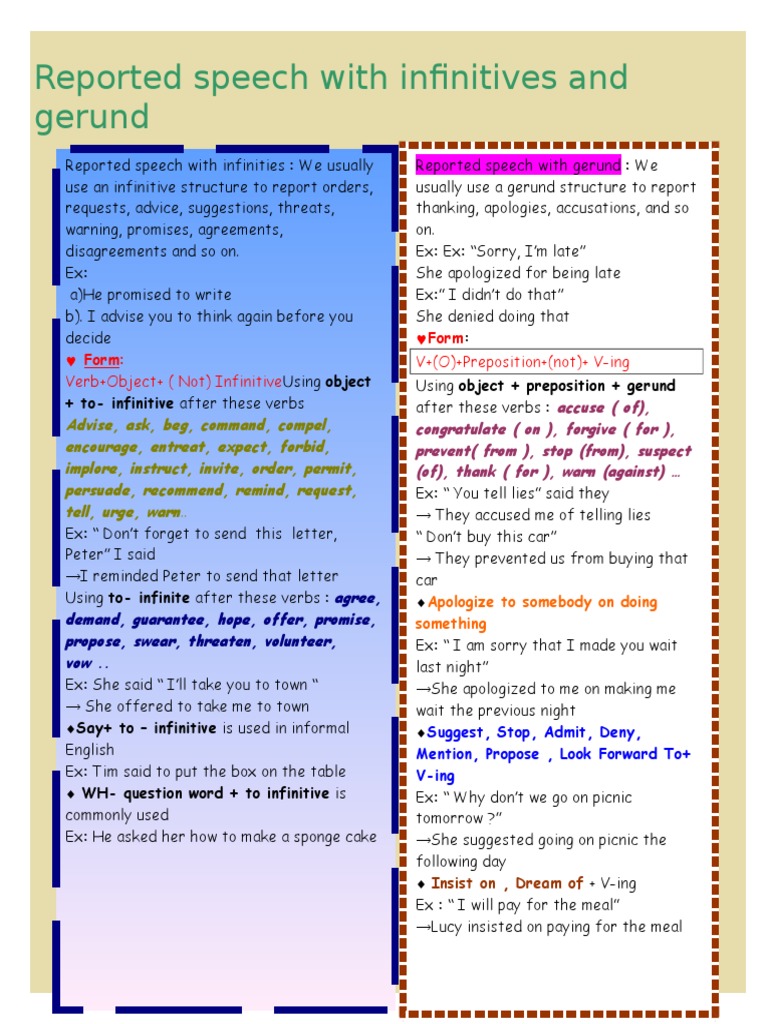 Reported speech with infinitives and
gerund
Reported speech with infinities : We usually
use an infinitive structure to report orders,
requests, advice, suggestions, threats,
warning, promises, agreements,
disagreements and so on.
Ex:
a)He promised to write
b). I advise you to think again before you
decide
♥ Form:
Verb+Object+ ( Not) InfinitiveUsing object
+ to- infinitive after these verbs
Advise, ask, beg, command, compel,
encourage, entreat, expect, forbid,
implore, instruct, invite, order, permit,
persuade, recommend, remind, request,
tell, urge, warn..
Ex: “ Don’t forget to send this letter,
Peter” I said
→I reminded Peter to send that letter
Using to- infinite after these verbs : agree,
demand, guarantee, hope, offer, promise,
propose, swear, threaten, volunteer,
vow ..
Ex: She said “ I’ll take you to town “
→ She offered to take me to town
♦Say+ to – infinitive is used in informal
English
Ex: Tim said to put the box on the table
♦ WH- question word + to infinitive is
commonly used
Ex: He asked her how to make a sponge cake
Reported speech with gerund : We
usually use a gerund structure to report
thanking, apologies, accusations, and so
on.
Ex: Ex: “Sorry, I’m late”
She apologized for being late
Ex:” I didn’t do that”
She denied doing that
♥Form:
V+(O)+Preposition+(not)+ V-ing
Using object + preposition + gerund
after these verbs : accuse ( of),
congratulate ( on ), forgive ( for ),
prevent( from ), stop (from), suspect
(of), thank ( for ), warn (against) …
Ex: “ You tell lies” said they
→ They accused me of telling lies
“ Don’t buy this car”
→ They prevented us from buying that
car
♦Apologize to somebody on doing
something
Ex: “ I am sorry that I made you wait
last night”
→She apologized to me on making me
wait the previous night
♦Suggest, Stop, Admit, Deny,
Mention, Propose , Look Forward To+
V-ing
Ex: “ Why don’t we go on picnic
tomorrow ?”
→She suggested going on picnic the
following day
♦ Insist on , Dream of + V-ing
Ex : “ I will pay for the meal”
→Lucy insisted on paying for the meal